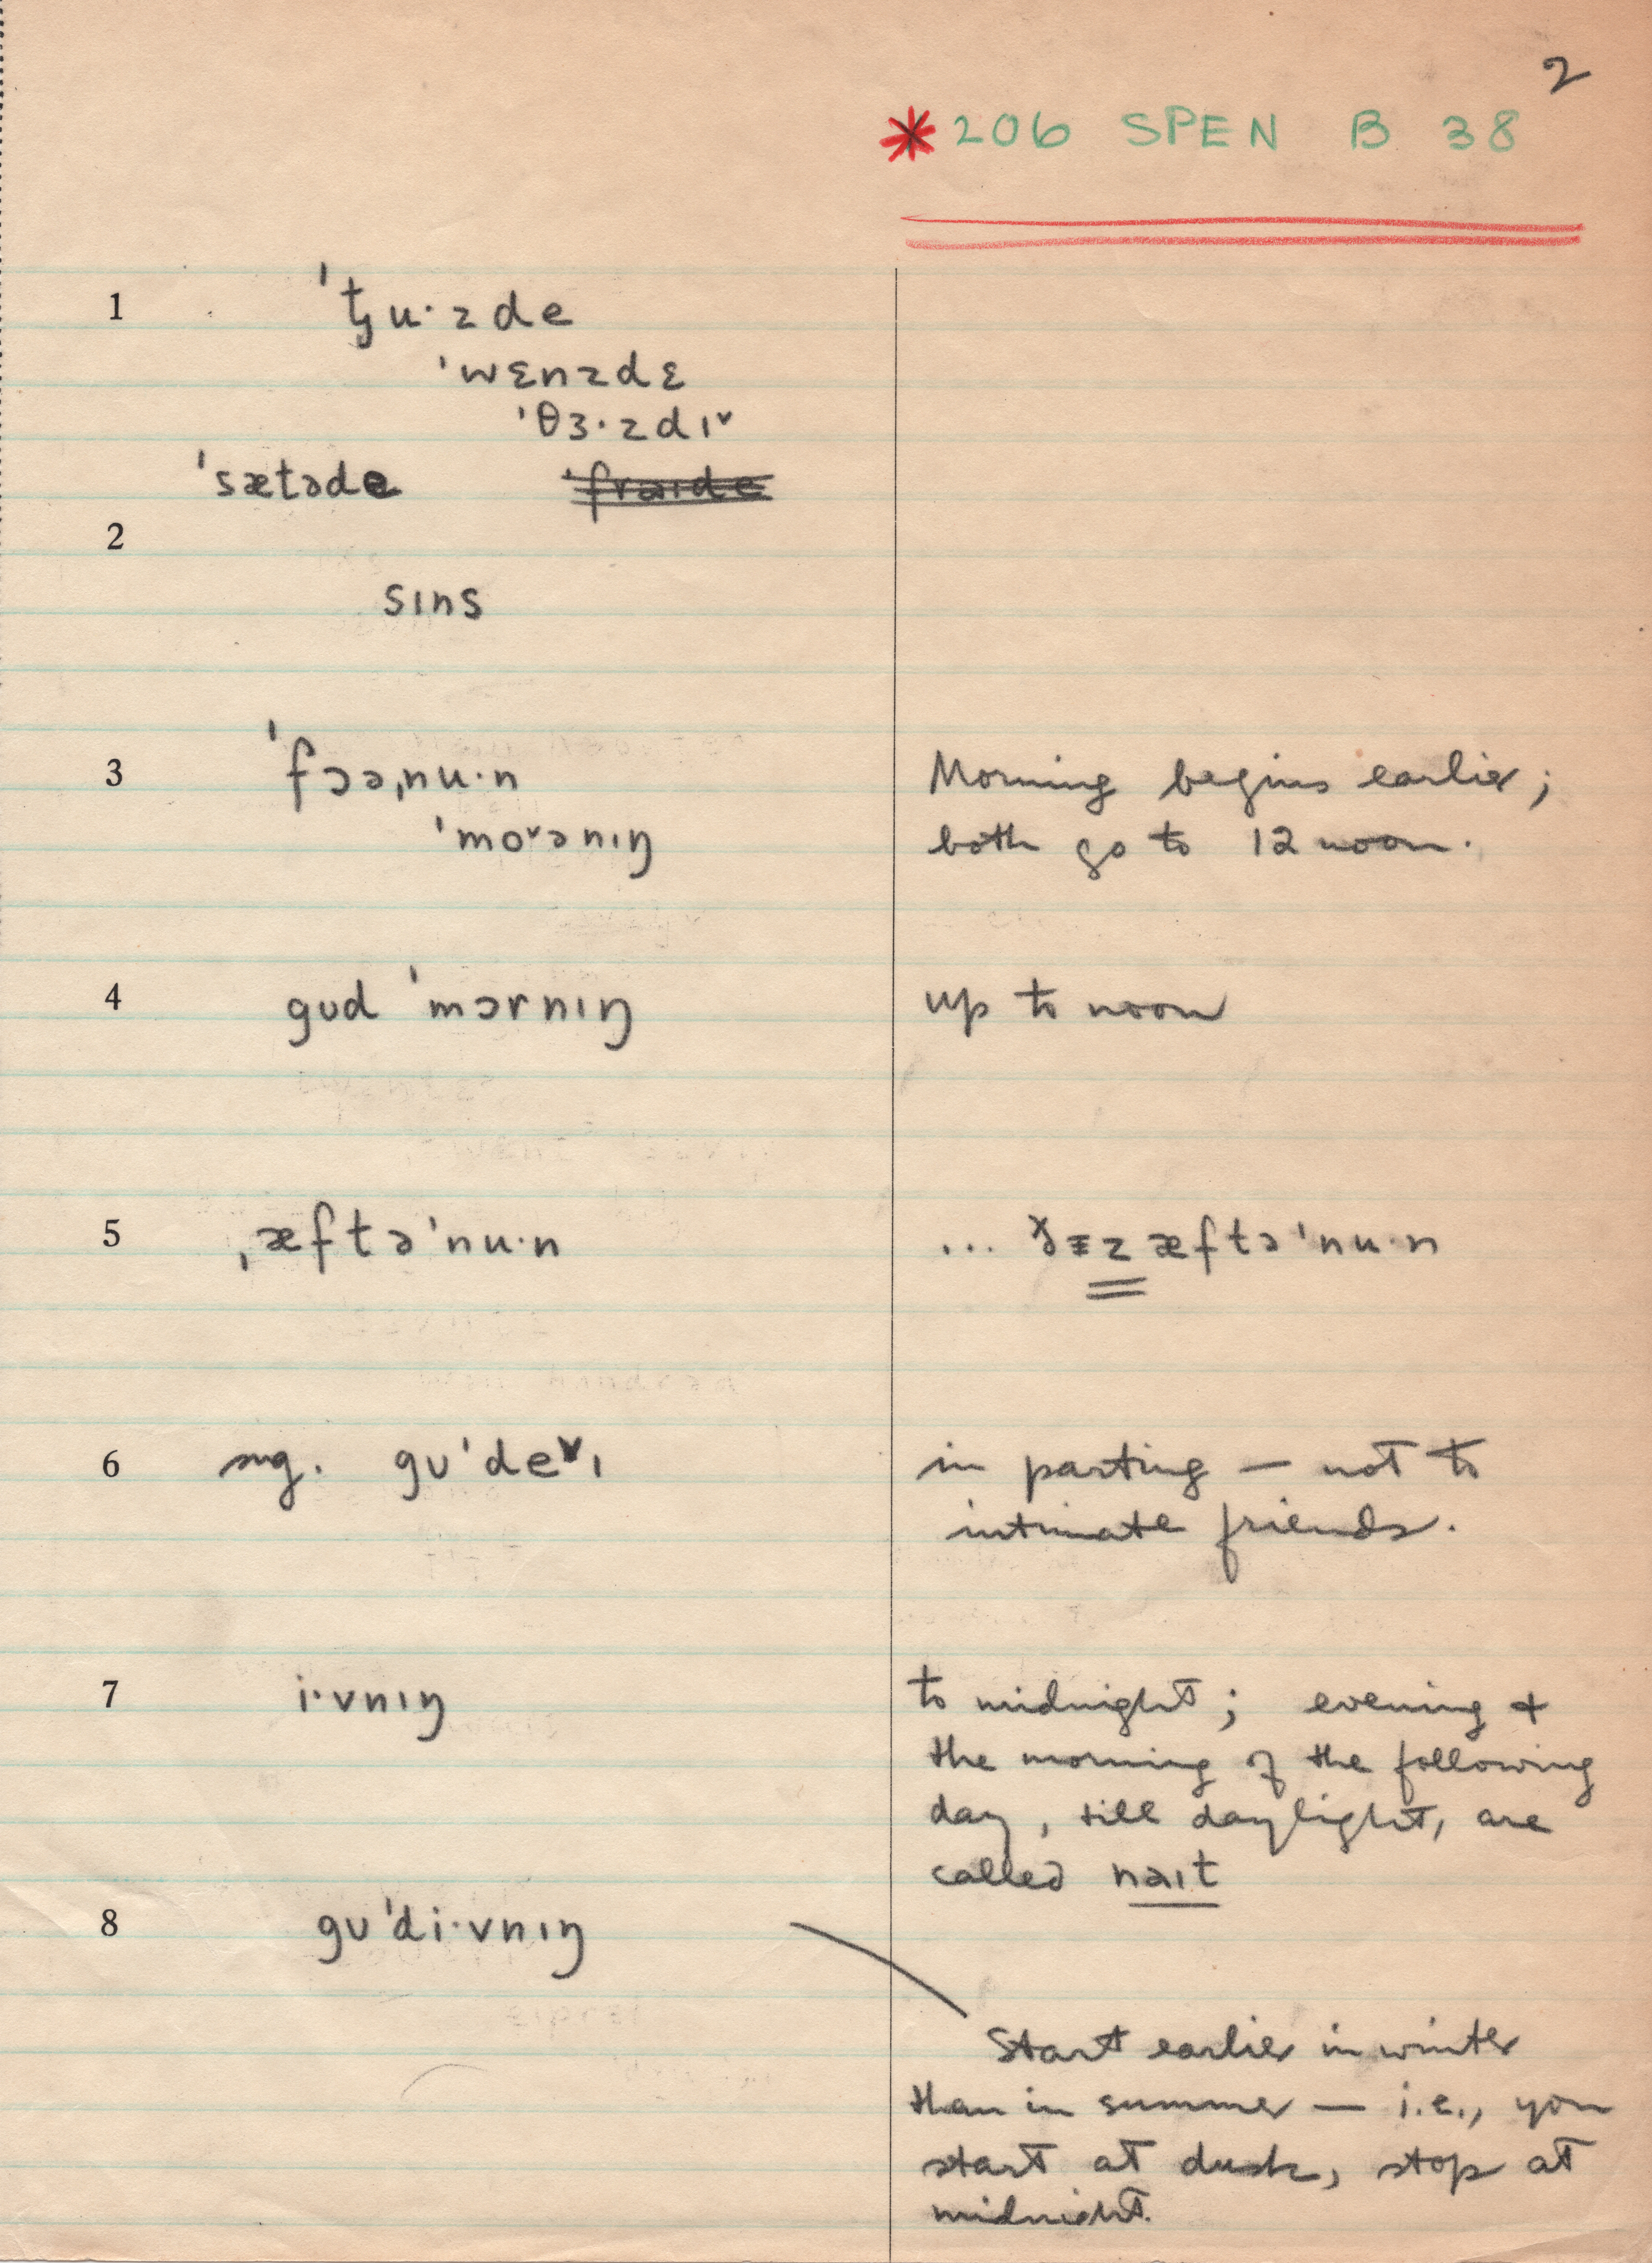 2
*206 SPEN B 38
1 ˈtʃu·zde
ˈwɛnzdɛ
ˈθɜ·zdɪ˅
ˈsætəde ˈfrəɪde
2
sɪns
3 ˈfɔəˌnu·n Morning begins earlier;
ˈmo˅ənɪŋ both go to 12 noon.
4 gʊd ˈmɔrnɪŋ up to noon
5 ˌæftəˈnu·n ... ðɪz æftəˈnu·n
6 sug. gʊˈde˅ɪ in parting — not to
intimate friends.
7 i·vnɪŋ to midnight; evening +
the morning of the following
day, till daylight, are
called nəɪt
8 gʊˈdi·vnɪŋ
Start earlier in winter
than in summer — i.e., you
start at dusk, stop at
midnight.